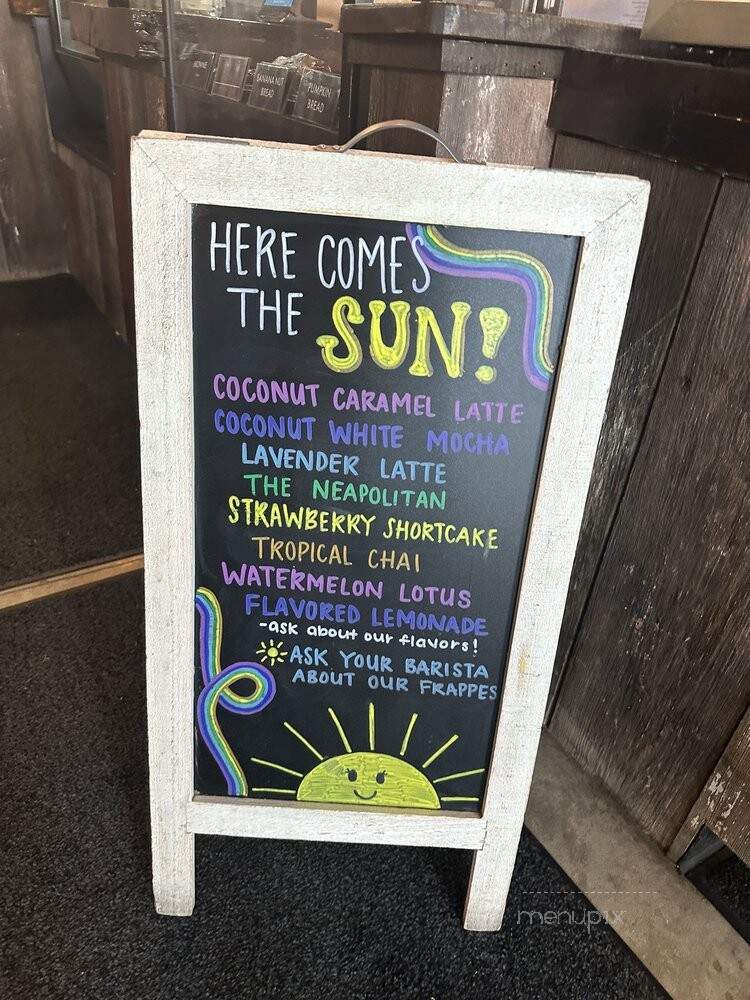 BROWNIE
BANANA NUT
BREAD
PUMPKIN
BREAD
HERE COMES
THE SUN!
COCONUT CARAMEL LATTE
COCONUT WHITE MOCHA
LAVENDER LATTE
THE NEAPOLITAN
STRAWBERRY SHORTCAKE
TROPICAL CHAI
WATERMELON LOTUS
FLAVORED LEMONADE
-ask about our flavors!
ASK YOUR BARISTA
ABOUT OUR FRAPPES
menupix